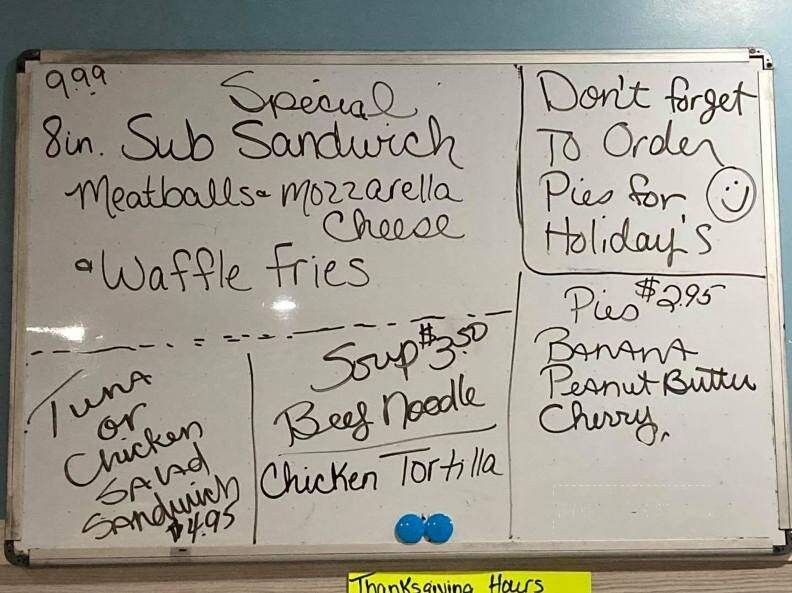 9.99
Special
8in. Sub Sandwich
Meatballs & mozzarella
Cheese
& Waffle fries
Don't forget
To Order
Pies for
Holiday's
Tuna
or
Chicken
SALAD
SANdwich
$4.95
Soup $3.50
Beef Noodle
Chicken Tortilla
Pies $2.95
BANANA
PeANut Butter
Cherry,
Thanksgiving Hours